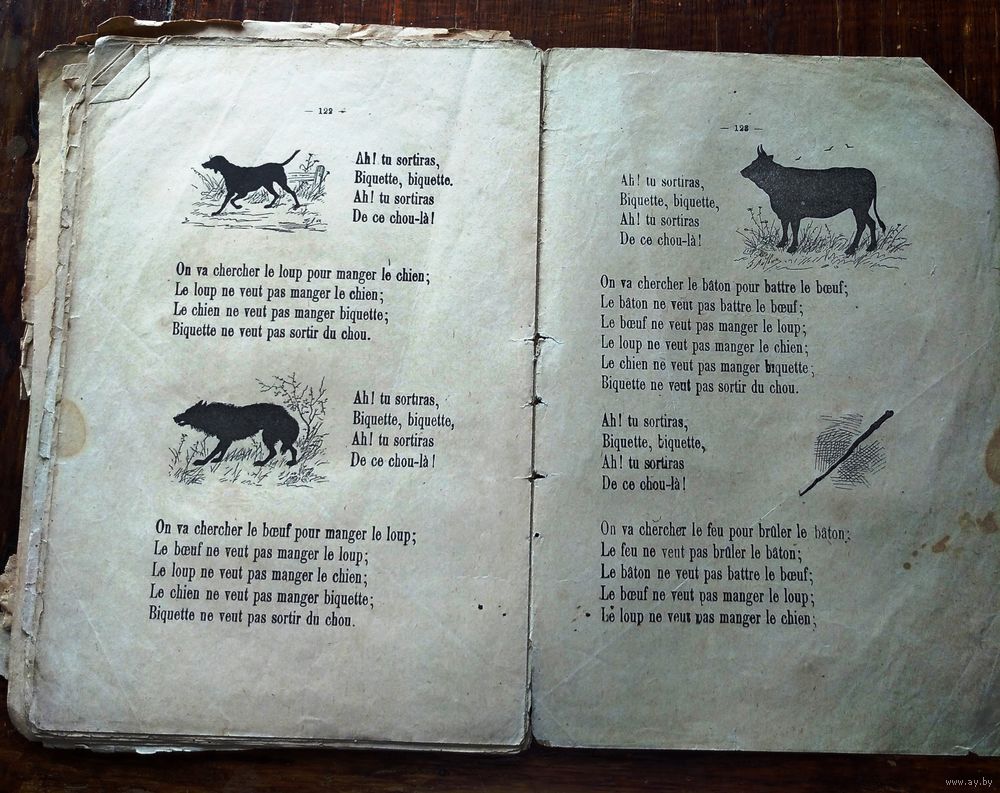 — 122 —
Ah! tu sortiras,
Biquette, biquette.
Ah! tu sortiras
De ce chou-là!
On va chercher le loup pour manger le chien;
Le loup ne veut pas manger le chien;
Le chien ne veut pas manger biquette;
Biquette ne veut pas sortir du chou.
Ah! tu sortiras,
Biquette, biquette,
Ah! tu sortiras
De ce chou-là!
On va chercher le bœuf pour manger le loup;
Le bœuf ne veut pas manger le loup;
Le loup ne veut pas manger le chien;
Le chien ne veut pas manger biquette;
Biquette ne veut pas sortir du chou.
— 123 —
Ah! tu sortiras,
Biquette, biquette,
Ah! tu sortiras
De ce chou-là!
On va chercher le bâton pour battre le bœuf;
Le bâton ne veut pas battre le bœuf;
Le bœuf ne veut pas manger le loup;
Le loup ne veut pas manger le chien;
Le chien ne veut pas manger biquette;
Biquette ne veut pas sortir du chou.
Ah! tu sortiras,
Biquette, biquette,
Ah! tu sortiras
De ce chou-là!
On va chercher le feu pour brûler le bâton;
Le feu ne veut pas brûler le bâton;
Le bâton ne veut pas battre le bœuf;
Le bœuf ne veut pas manger le loup;
Le loup ne veut pas manger le chien;
www.ay.by